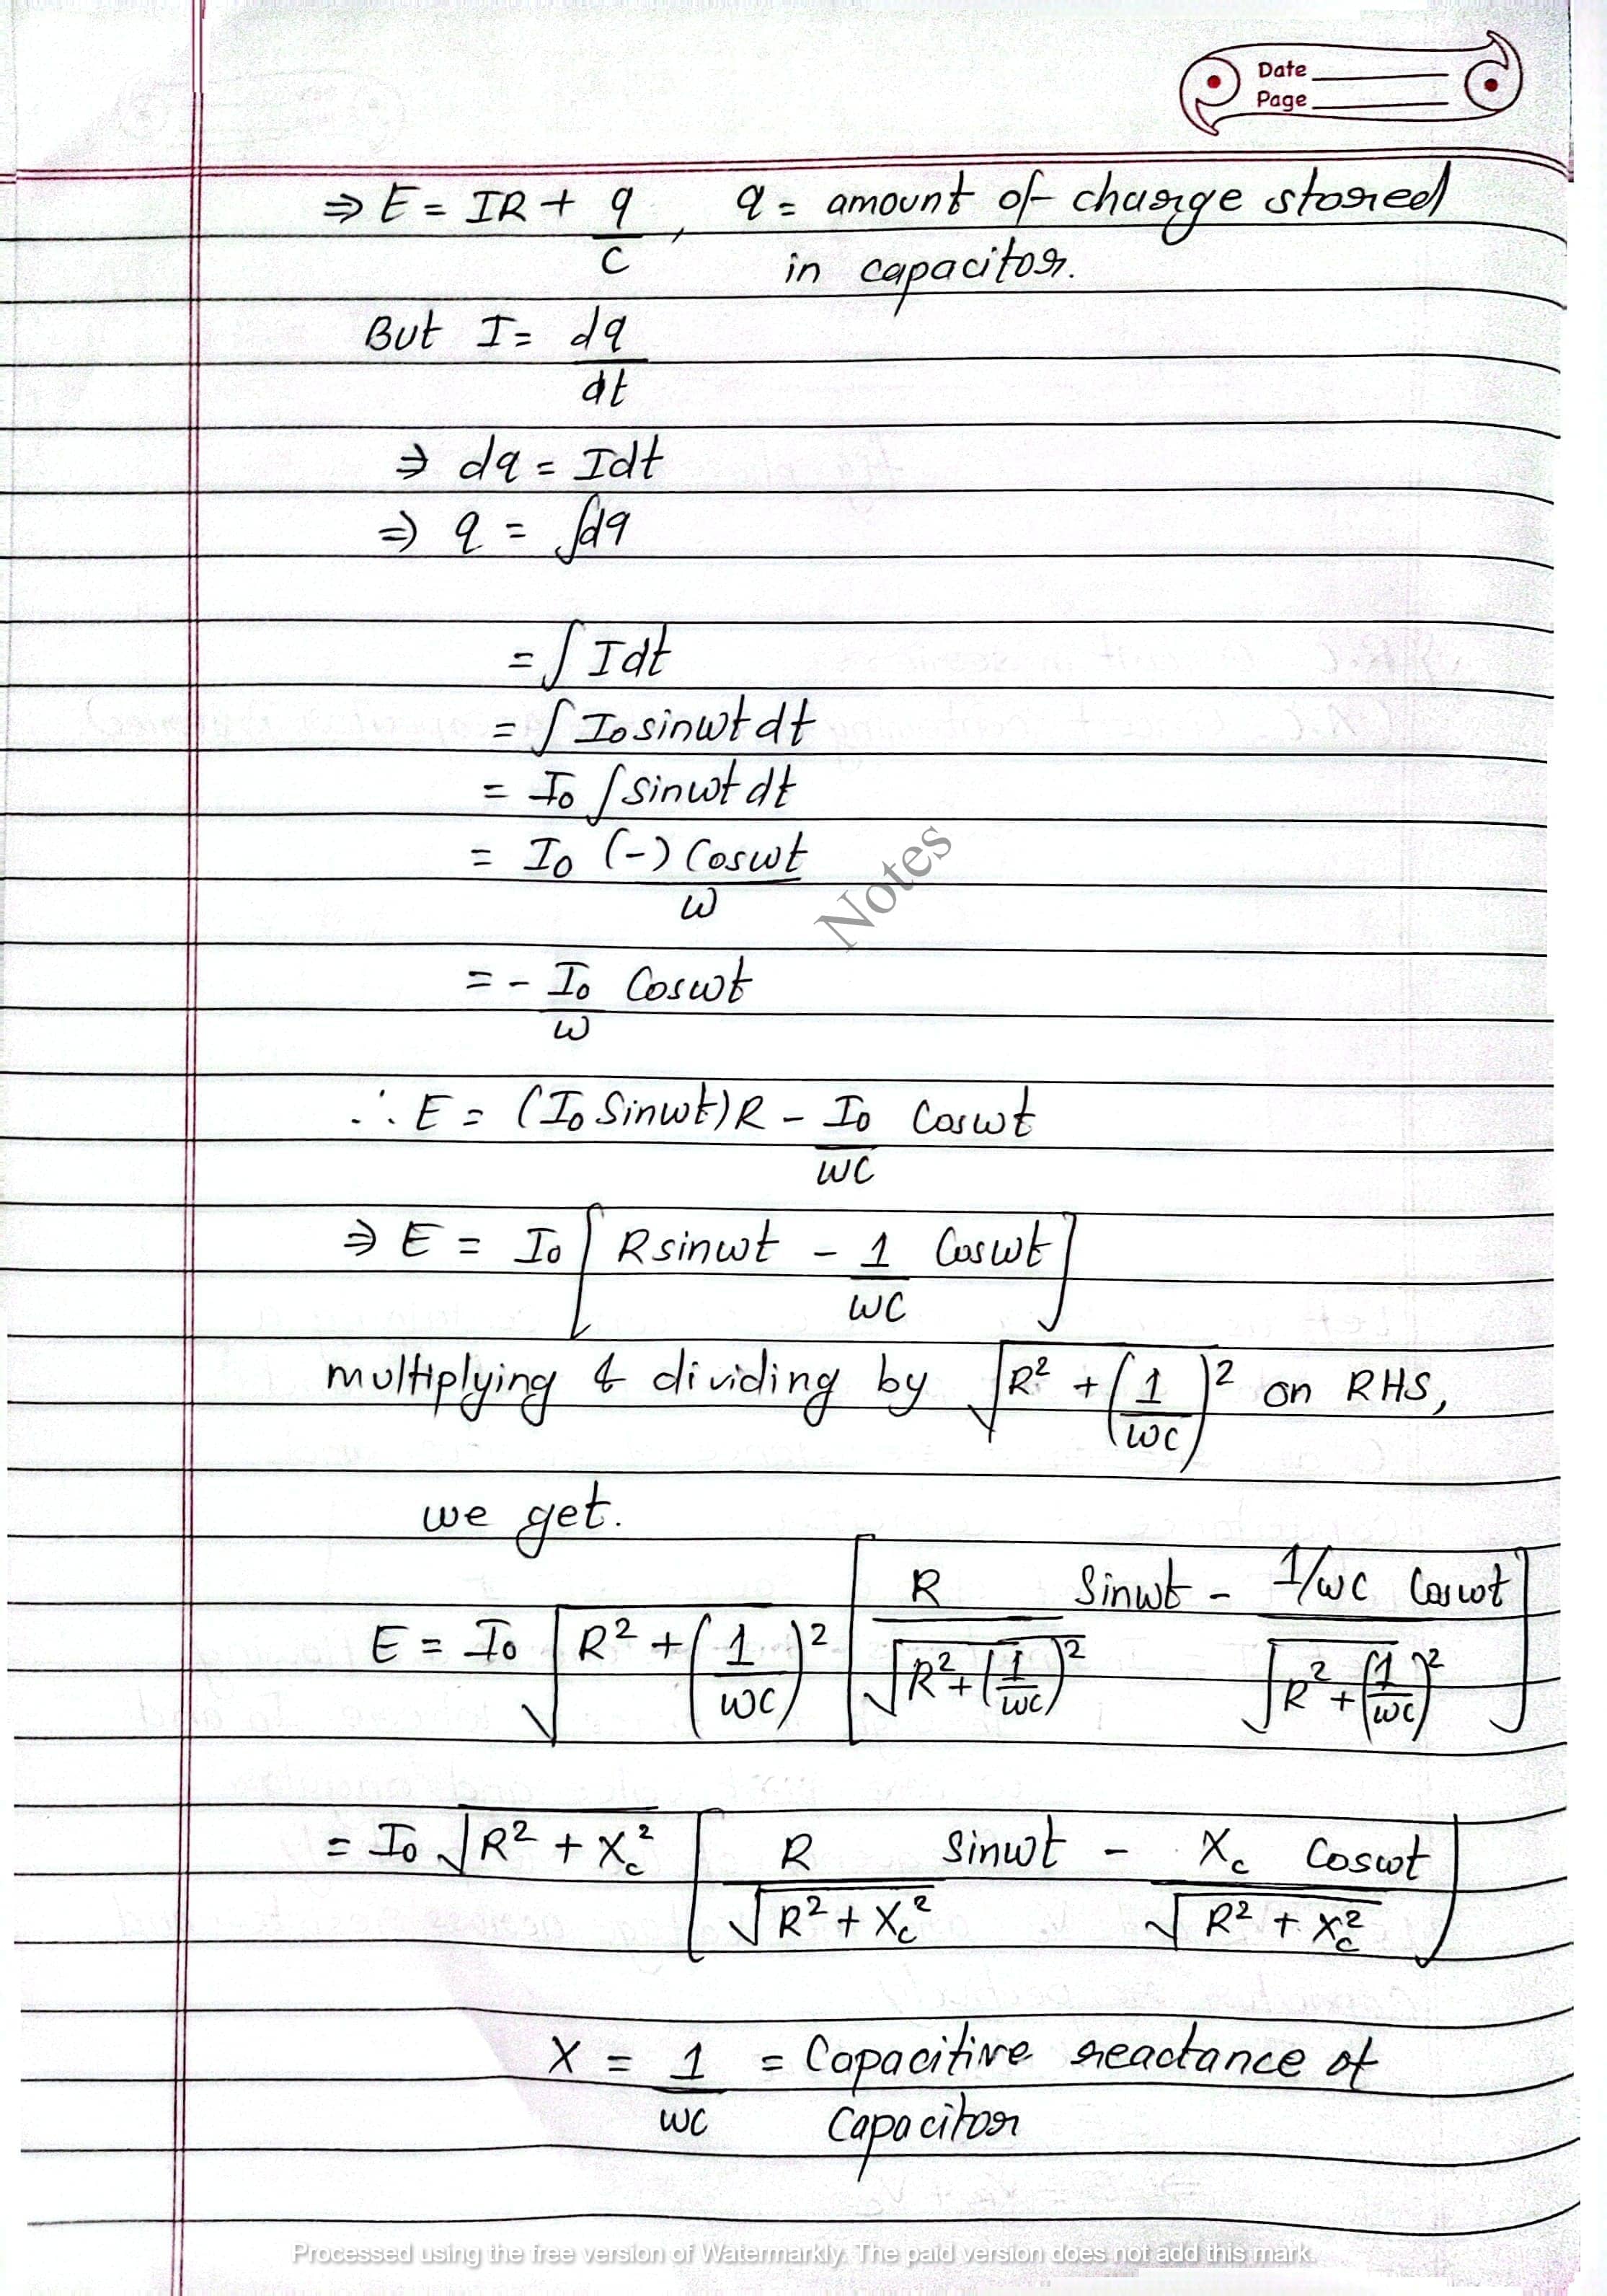 Date
Page
⇒ E = IR + q/C, q = amount of charge stored
in capacitor.
But I = dq/dt
⇒ dq = Idt
⇒ q = ∫dq
= ∫ Idt
= ∫ I₀ sinωt dt
= I₀ ∫ sinωt dt
= I₀ (-) Cosωt/ω
Notes
= - I₀/ω Cosωt
∴ E = (I₀ Sinωt)R - I₀/ωC Cosωt
⇒ E = I₀ [R sinωt - 1/ωC Cosωt]
multiplying & dividing by √(R² + (1/ωC)²) on RHS,
we get.
E = I₀ √(R² + (1/ωC)²) [R/√(R² + (1/ωC)²) Sinωt - 1/ωC Cosωt/√(R² + (1/ωC)²)]
= I₀ √(R² + X_c²) [R/√(R² + X_c²) Sinωt - X_c Cosωt/√(R² + X_c²)]
X = 1/ωC = Capacitive reactance of
Capacitor
Processed using the free version of Watermarkly. The paid version does not add this mark.